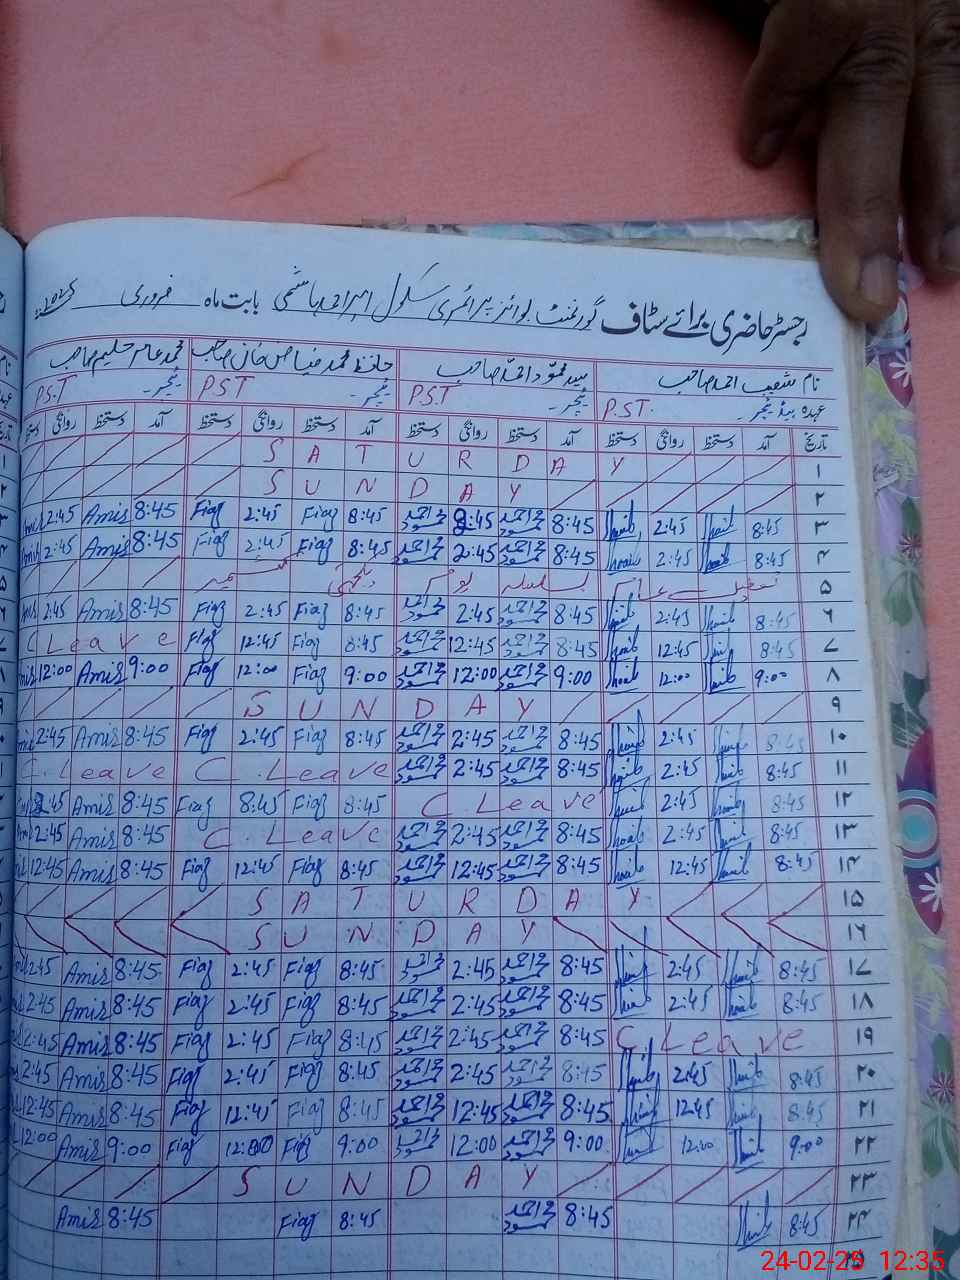 رجسٹر حاضری برائے سٹاف گورنمنٹ بوائز پرائمری سکول امیر احمد ہاشمی بابت ماہ فروری 2025
نام شعیب احمد صاحب سید محمود احمد صاحب حافظ محمد فیاض خان صاحب محمد عامر حلیم صاحب
عہدہ ہیڈ ٹیچر P.S.T. ٹیچر P.S.T ٹیچر P.S.T ٹیچر P.S.T
تاریخ آمد دستخط روانگی دستخط آمد دستخط روانگی دستخط آمد دستخط روانگی دستخط آمد دستخط روانگی دستخط
۱ SATURDAY
۲ SUNDAY
۳ 8:45 2:45 8:45 محمود احمد 2:45 محمود احمد 8:45 Fiaz 2:45 Fiaz 8:45 Amir 2:45
۴ 8:45 2:45 8:45 محمود احمد 2:45 محمود احمد 8:45 Fiaz 2:45 Fiaz 8:45 Amir 2:45
۵ تعطیل بسلسلہ یوم یکجہتی کشمیر
۶ 8:45 2:45 8:45 محمود احمد 2:45 محمود احمد 8:45 Fiaz 2:45 Fiaz 8:45 Amir 2:45
۷ 8:45 12:45 8:45 محمود احمد 12:45 محمود احمد 8:45 Fiaz 12:45 Fiaz C Leave
۸ 9:00 12:00 9:00 محمود احمد 12:00 محمود احمد 9:00 Fiaz 12:00 Fiaz 9:00 Amir 12:00
۹ SUNDAY
۱۰ 8:45 2:45 8:45 محمود احمد 2:45 محمود احمد 8:45 Fiaz 2:45 Fiaz 8:45 Amir 2:45
۱۱ 8:45 2:45 8:45 محمود احمد 2:45 محمود احمد C. Leave C. Leave
۱۲ 8:45 2:45 C Leave 8:45 Fiaz 8:45 Fiaz 8:45 Amir 2:45
۱۳ 8:45 2:45 8:45 محمود احمد 2:45 محمود احمد C. Leave 8:45 Amir 2:45
۱۴ 8:45 12:45 8:45 محمود احمد 12:45 محمود احمد 8:45 Fiaz 12:45 Fiaz 8:45 Amir 12:45
۱۵ SATURDAY
۱۶ SUNDAY
۱۷ 8:45 2:45 8:45 محمود احمد 2:45 محمود احمد 8:45 Fiaz 2:45 Fiaz 8:45 Amir 2:45
۱۸ 8:45 2:45 8:45 محمود احمد 2:45 محمود احمد 8:45 Fiaz 2:45 Fiaz 8:45 Amir 2:45
۱۹ C Leave 8:45 محمود احمد 2:45 محمود احمد 8:45 Fiaz 2:45 Fiaz 8:45 Amir 2:45
۲۰ 8:45 2:45 8:45 محمود احمد 2:45 محمود احمد 8:45 Fiaz 2:45 Fiaz 8:45 Amir 2:45
۲۱ 8:45 12:45 8:45 محمود احمد 12:45 محمود احمد 8:45 Fiaz 12:45 Fiaz 8:45 Amir 12:45
۲۲ 9:00 12:00 9:00 محمود احمد 12:00 محمود احمد 9:00 Fiaz 12:00 Fiaz 9:00 Amir 12:00
۲۳ SUNDAY
۲۴ 8:45 8:45 محمود احمد 8:45 Fiaz 8:45 Amir
۲۵
24-02-25 12:35